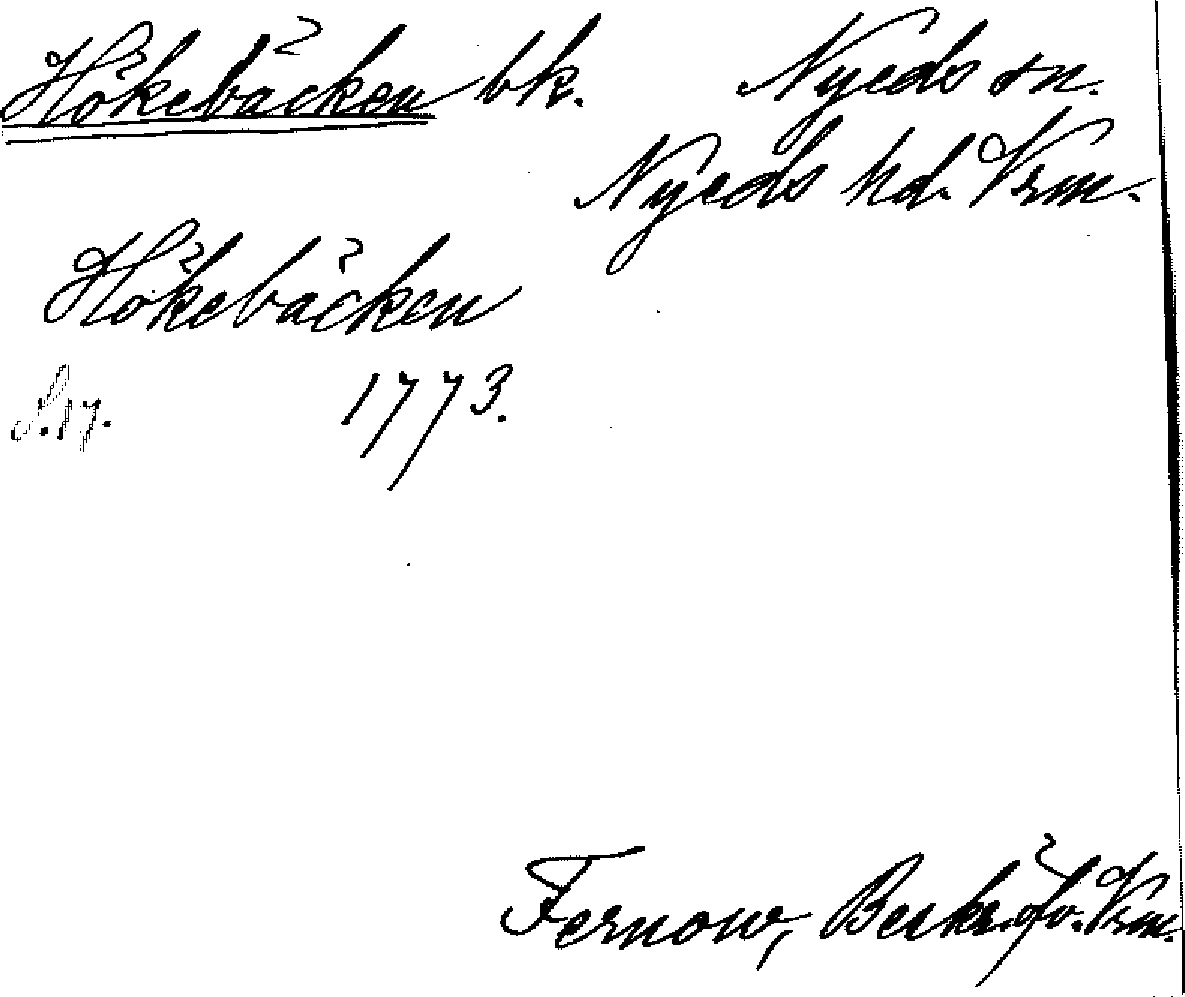 Hökebäcken bk. Nyeds sn.
Nyeds hd. Vrm.
Hökebäcken
S. 17. 1773.
Fernow, Beskr. öfv. Vrm.